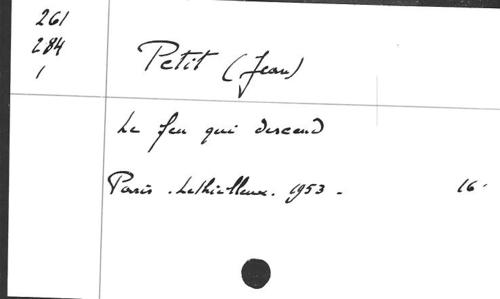 261
284
1
Petit (Jean)
Le feu qui descend
Paris . Lethielleux . 1953 - 16°